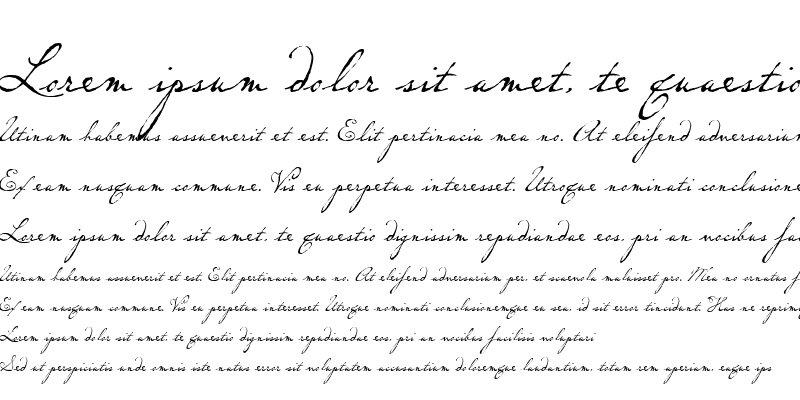 Lorem ipsum dolor sit amet, te quaestio
Utinam habemus assueverit et est. Elit pertinacia mea no. At eleifend adversarium
Ex eam nusquam commune. Vis eu perpetua interesset. Utroque nominati conclusione
Lorem ipsum dolor sit amet, te quaestio dignissim repudiandae eos, pri an vocibus fac
Utinam habemus assueverit et est. Elit pertinacia mea no. At eleifend adversarium per, et scaevola maluisset pro. Mea no ornatus f
Ex eam nusquam commune. Vis eu perpetua interesset. Utroque nominati conclusionemque eu sea, id sit error tincidunt. Has ne reprim
Lorem ipsum dolor sit amet, te quaestio dignissim repudiandae eos, pri an vocibus facilisis voluptari
Sed ut perspiciatis unde omnis iste natus error sit voluptatem accusantium doloremque laudantium, totam rem aperiam, eaque ips